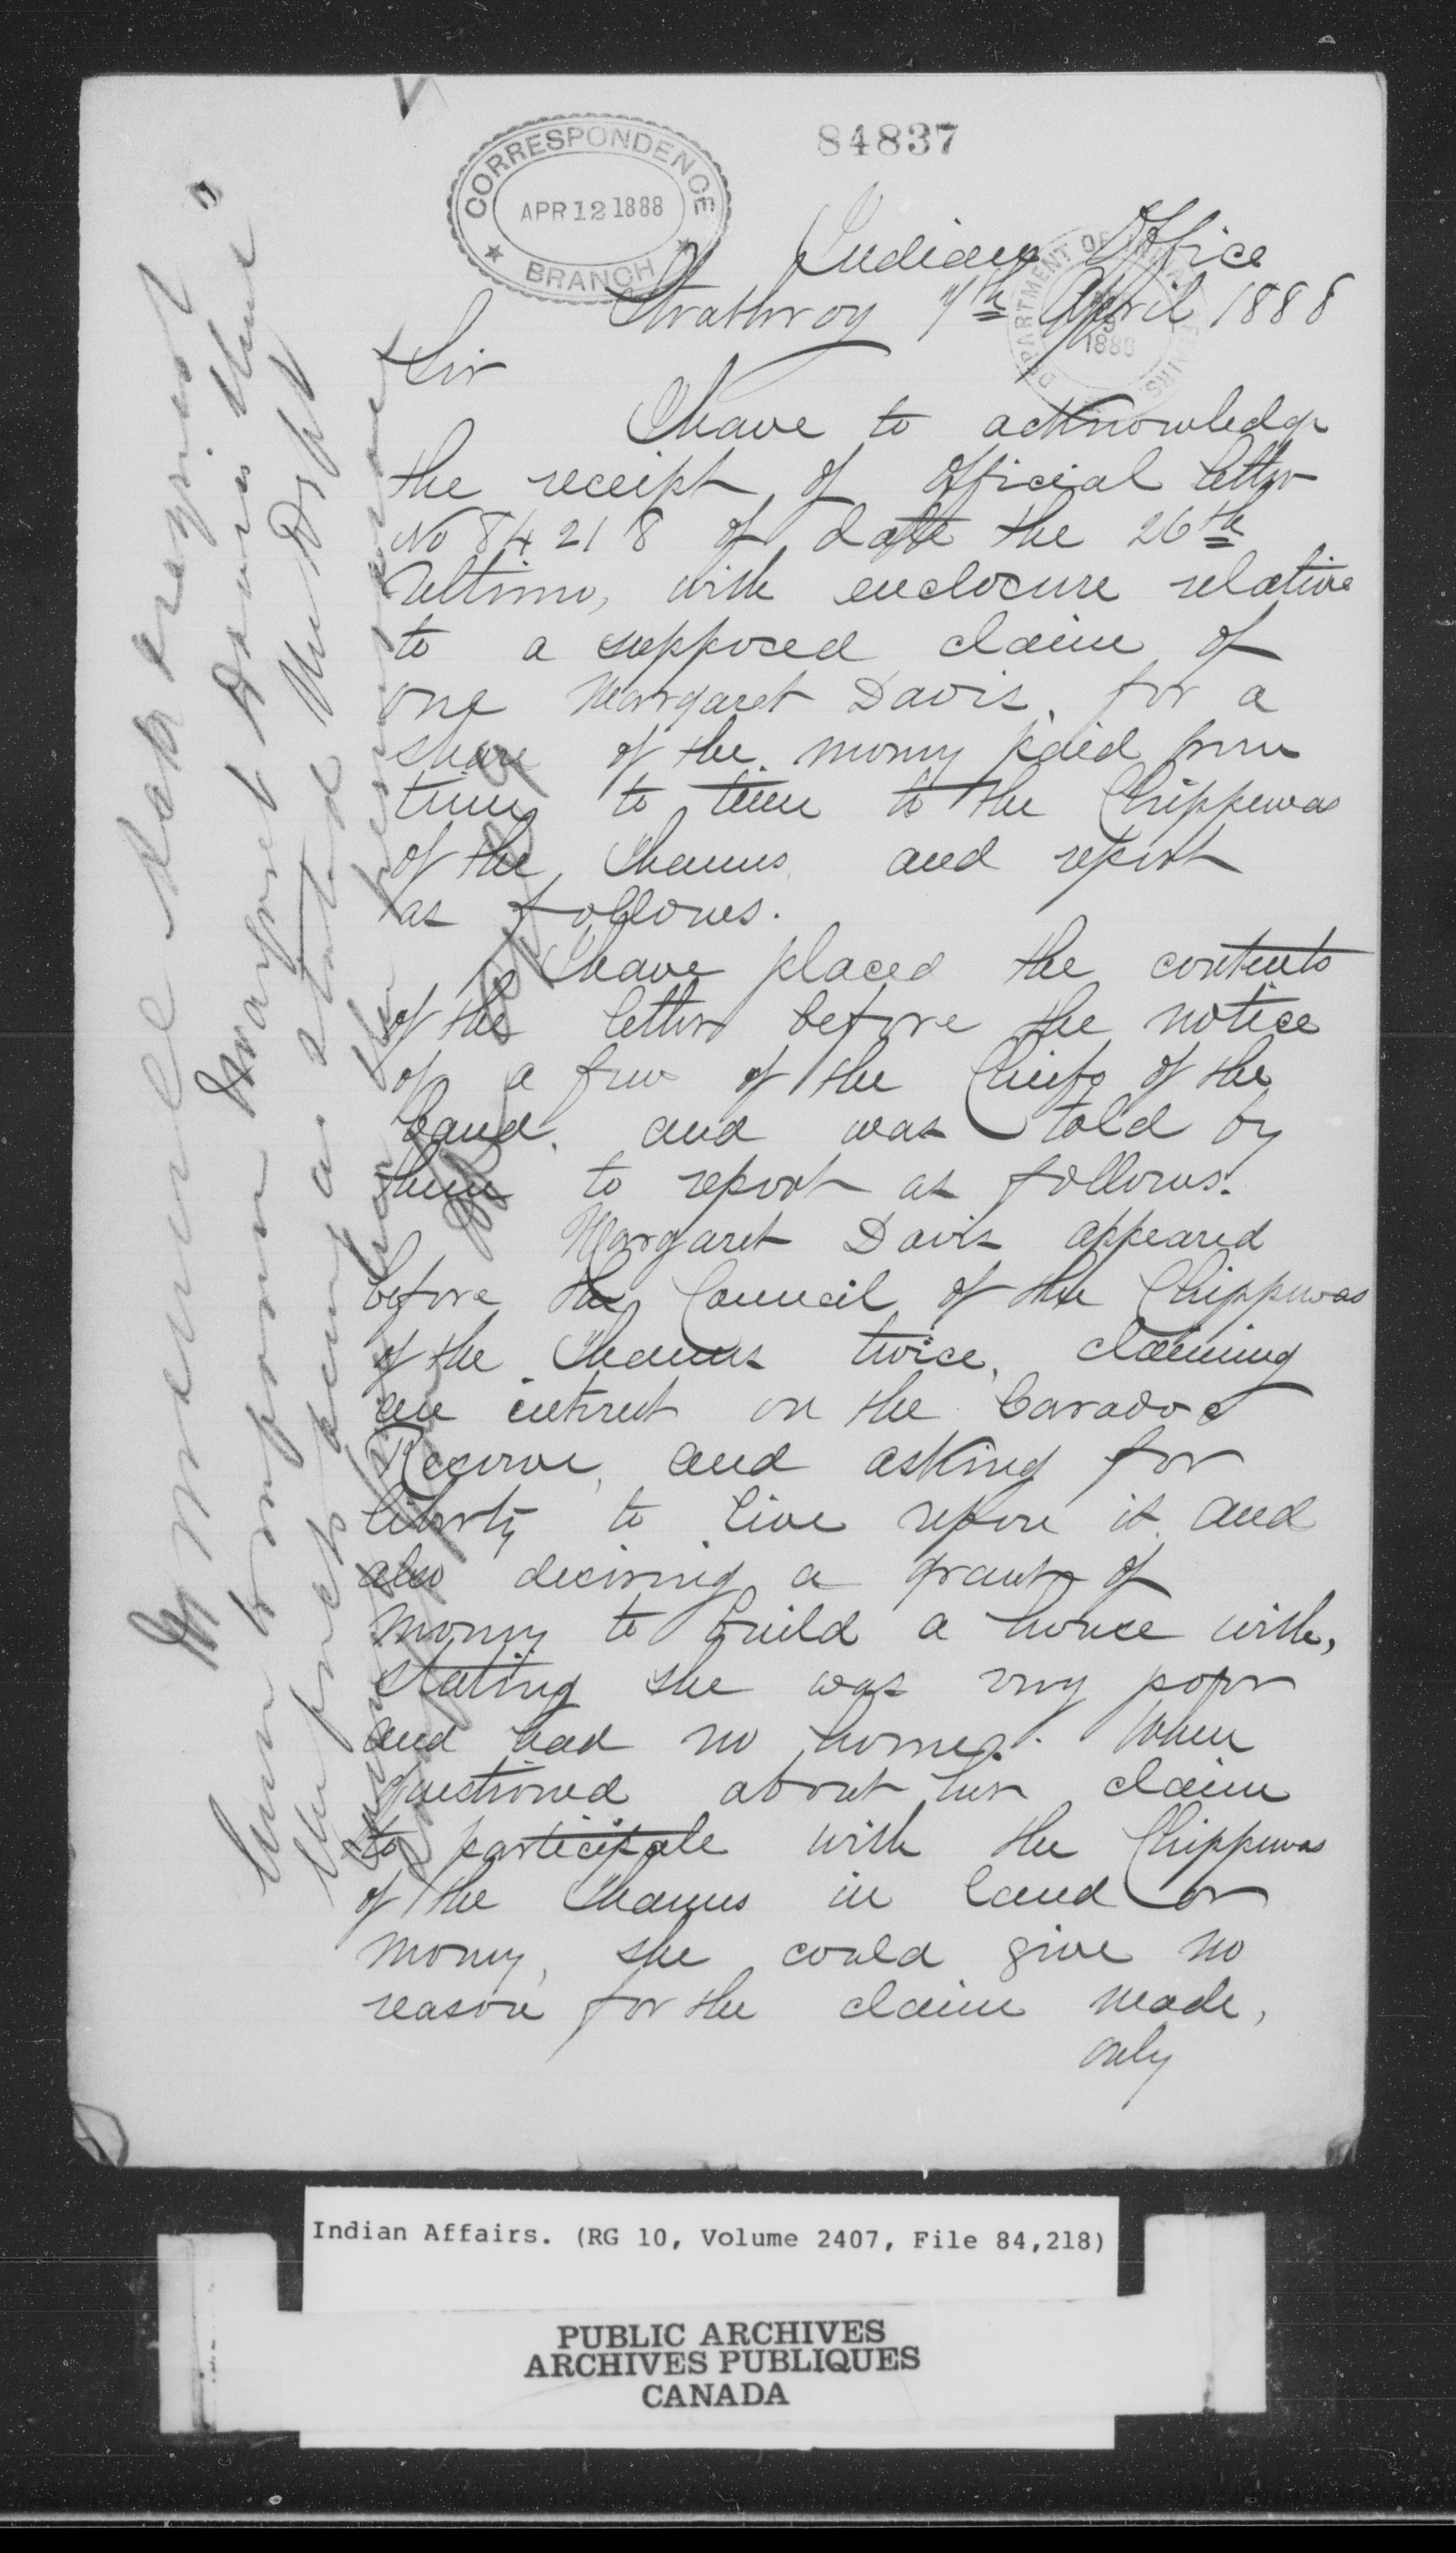 84837
CORRESPONDENCE
APR 12 1888
BRANCH
DEPARTMENT OF INDIAN AFFAIRS
1888
Indian Office
Strathroy 7th April 1888
Sir
I have to acknowledge
the receipt of official letter
No 84218 of date the 26th
Ultimo, with enclosure relative
to a supposed claim of
one Margaret Davis, for a
share of the money paid from
time to time to the Chippewas
of the Thames, and report
as follows.
I have placed the contents
of the letter before the notice
of a few of the Chiefs of the
band, and was told by
them to report as follows.
Margaret Davis appeared
before the Council of the Chippewas
of the Thames twice, claiming
an interest on the Caradoc
Reserve, and asking for
liberty to live upon it and
also desiring a grant of
money to build a house with,
stating she was very poor
and had no home. When
questioned about her claim
to participate with the Chippewas
of the Thames in land or
money, she could give no
reason for the claim made,
only
Margaret Davis that
the facts being as stated the Dept
Indian Affairs. (RG 10, Volume 2407, File 84,218)
PUBLIC ARCHIVES
ARCHIVES PUBLIQUES
CANADA